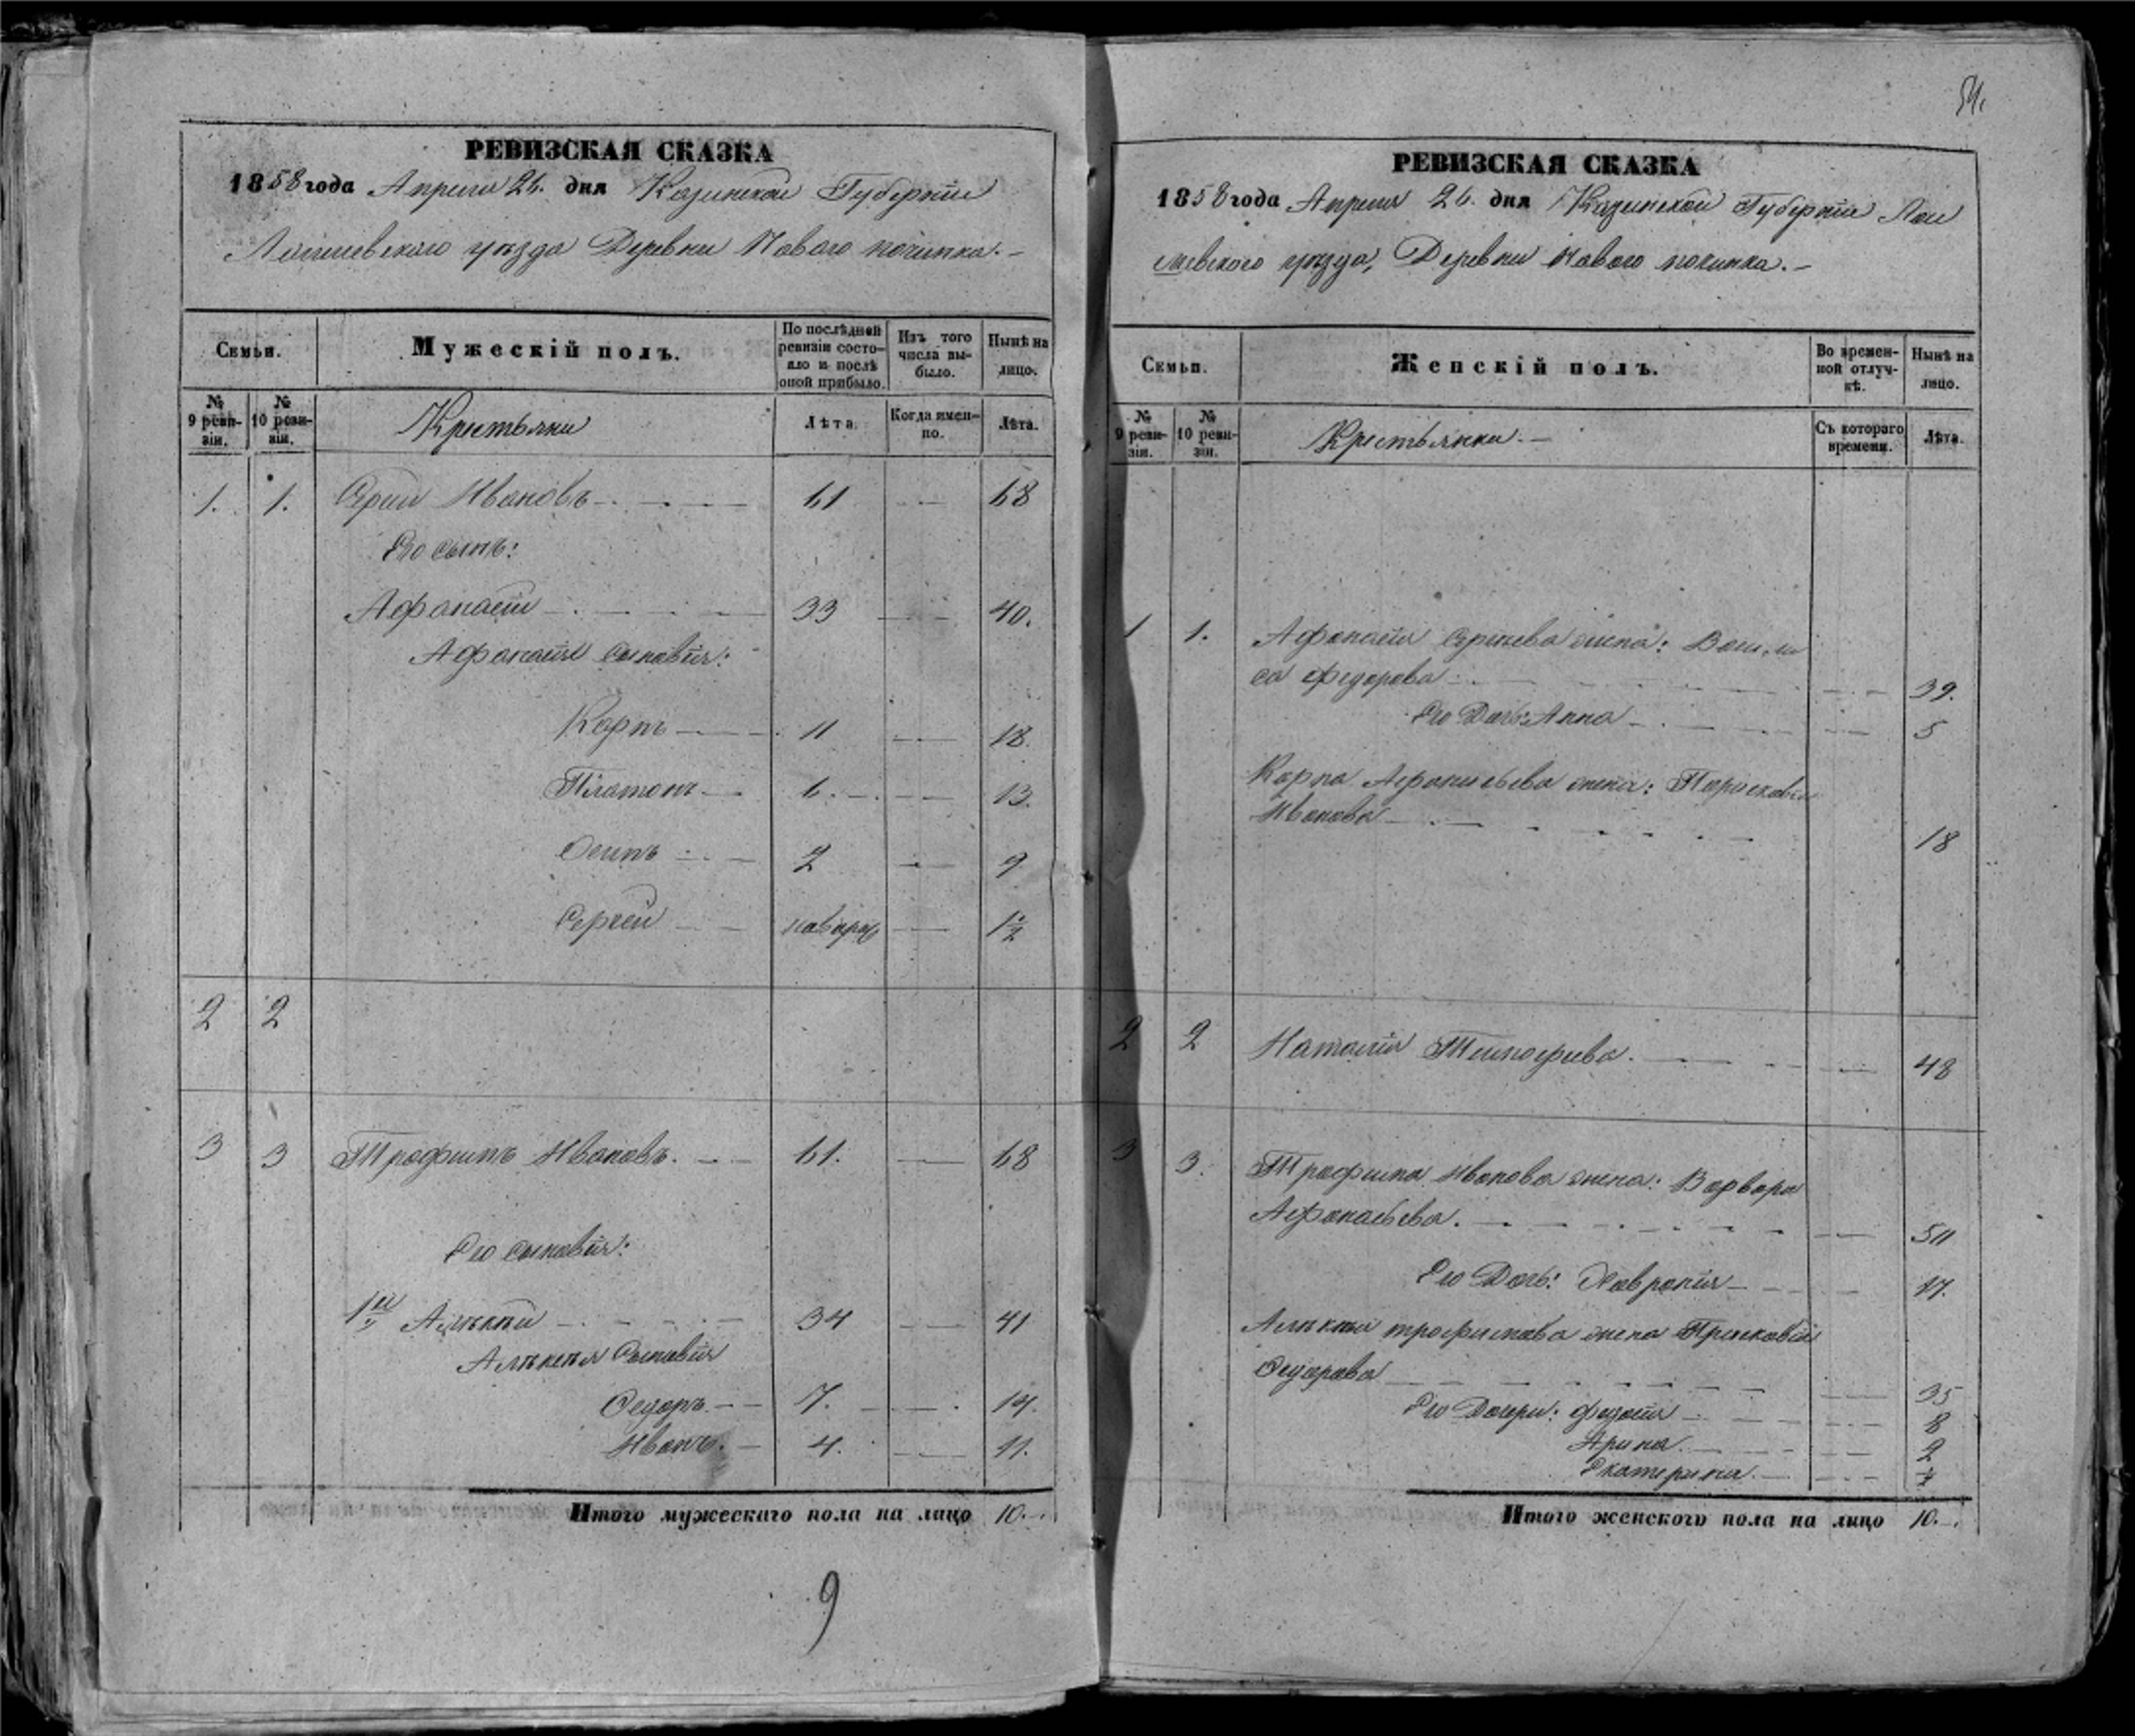 РЕВИЗСКАЯ СКАЗКА
1858 года Апреля 26. дня Казанской Губернiи
Лаишевскаго уѣзда Деревни Новаго починка.
Семьи.
Мужескiй полъ.
По послѣдней ревизiи состояло и послѣ оной прибыло.
Изъ того числа выбыло.
Нынѣ на лицо.
№ 9 ревизiи.
№ 10 ревизiи.
Крестьяни
Лѣта
Когда именно.
Лѣта.
1. 1. Ивановъ 61 68
Его сынъ:
Афанасiй 33 40.
Афанасiя сыновiя:
Карпъ 11 18.
Платонъ 6. 13.
Осипъ 2 9
Сергей новорож 1/2
2 2
3 3 Трофимъ Ивановъ. 61. 68
Его сыновiя:
1й Алѣксѣй 34 41
Алѣксѣя Сыновiя
Ѳедоръ. 7. 14.
Иванъ. 4. 11.
Итого мужескаго пола на лицо 10.
9
54.
РЕВИЗСКАЯ СКАЗКА
1858 года Апреля 26. дня Казанской Губернiи Лаи
шевскаго уѣзда, Деревни Новаго починка.
Семьи.
Женскiй полъ.
Во временной отлучкѣ.
Нынѣ на лицо.
№ 9 ревизiи.
№ 10 ревизiи.
Крестьянки.
Съ котораго времени.
Лѣта.
1 1. Афанасiя жена: Васили
са Федорова 39.
Его Дочь: Анна 5
Карпа Афанасьева жена: Парасковiя
Иванова 18
2 2 Наталiя Тимофеева. 48
3 3. Трофима Иванова жена: Варвара
Афанасьева. 50
Его Дочь: Хаврония 17.
Алѣксѣя трофимова жена Прасковiя
Ѳедорова 35
Его Дочери: 8
Арина. 2
Екатерина.
Итого женского пола на лицо 10.